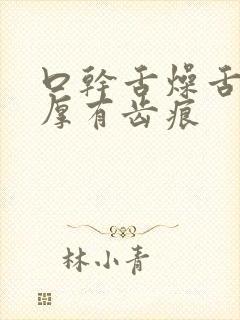 口幹舌燥舌
厚有齿痕
林小青